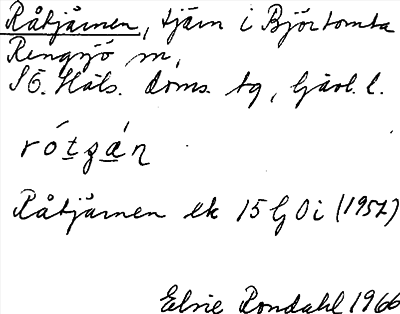 Råtjärnen, tjärn i Björtomta
Rengsjö sn,
SÖ. Häls. doms. tg, Gävl. l.
rótzán
Råtjärnen ek 15 G 0 i (1957)
Elsie Rondahl 1966